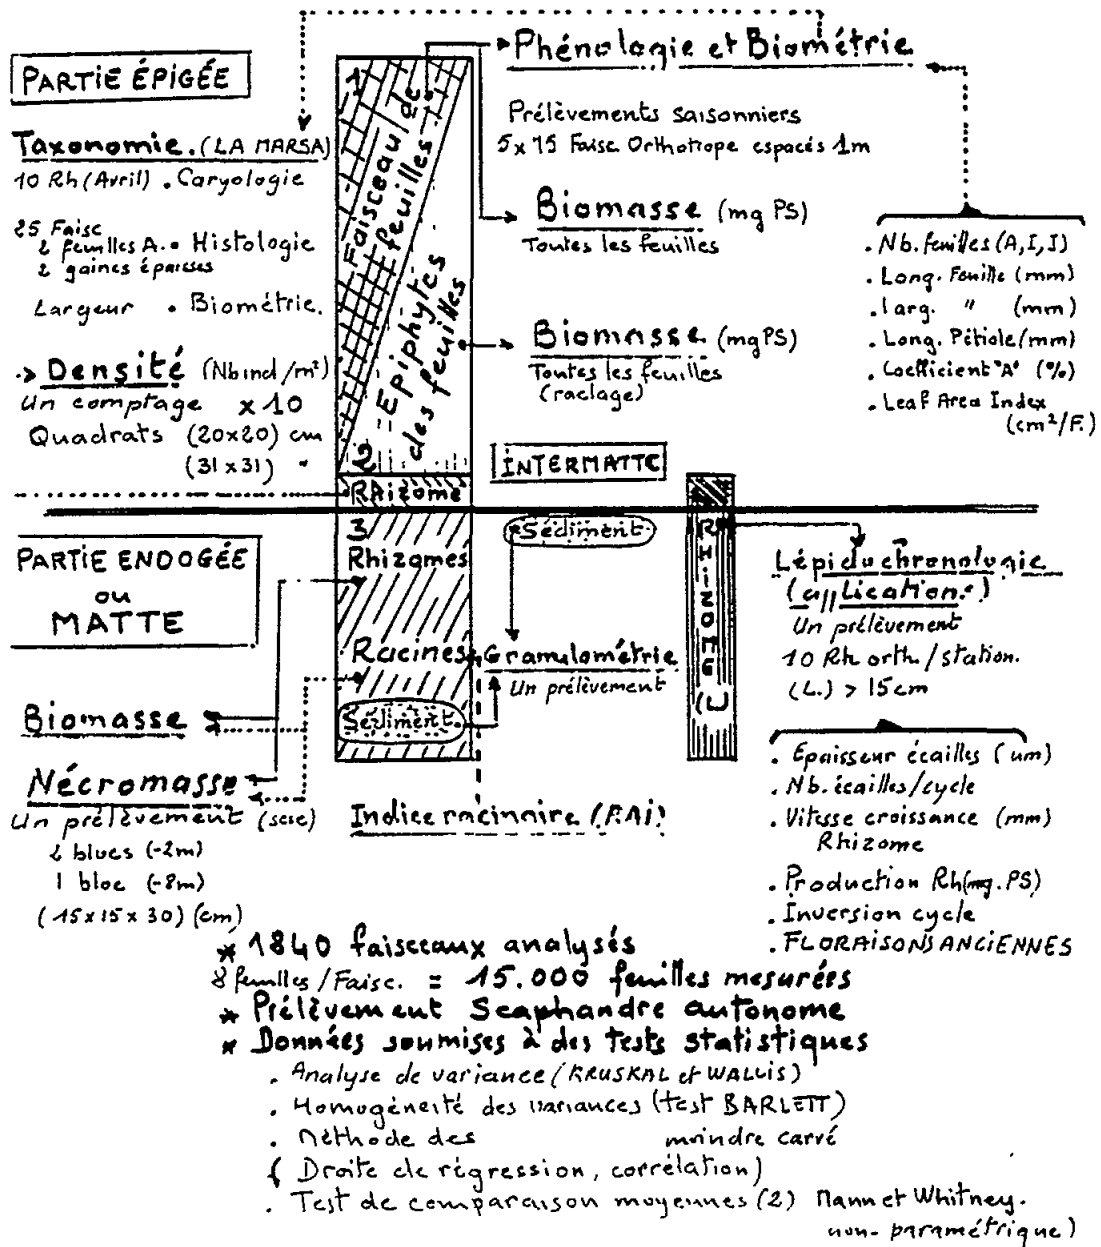 PARTIE ÉPIGÉE
Taxonomie. (LA MARSA)
10 Rh (Avril) . Caryologie
25 Faisc
2 feuilles A. . Histologie
2 gaines épaisses
Largeur . Biométrie.
.> Densité (Nbind/m²)
Un comptage x 10
Quadrats (20x20) cm
(31x31) "
1
Faisceau de
feuilles
Epiphytes
des feuilles
2
Rhizome
3
Rhizomes
Racines
Sédiment.
Phénologie et Biométrie
Prélèvements saisonniers
5 x 15 Faisc Orthotrope espacés 1m
Biomasse (mg PS)
Toutes les feuilles
Biomasse (mg PS)
Toutes les feuilles
(raclage)
. Nb. feuilles (A, I, I)
. Long. Feuille (mm)
. larg. " (mm)
. Long. Pétiole (mm)
. Coefficient "A" (%)
. Leaf Area Index
(cm²/F.)
INTERMATTE
Sédiment.
Granulométrie
Un prélèvement
RHIZOME (L)
Lépidochronologie
(application.)
Un prélèvement
10 Rh orth./station.
(L.) > 15cm
. Epaisseur écailles (um)
. Nb. écailles/cycle
. Vitesse croissance (mm)
Rhizome
. Production Rh (mg. PS)
. Inversion cycle
. FLORAISONS ANCIENNES
PARTIE ENDOGÉE
ou
MATTE
Biomasse
Nécromasse
Un prélèvement (scie)
2 blocs (-2m)
1 bloc (-8m)
(15x15x30) (cm)
Indice racinaire (R.Ai)
* 1840 faisceaux analysés
8 feuilles/Faisc. = 15.000 feuilles mesurées
* Prélèvement Scaphandre autonome
* Données soumises à des tests statistiques
. Analyse de variance (KRUSKAL et WALLIS)
. Homogéneité des variances (test BARLETT)
. Méthode des moindre carré
( Droite de régression, corrélation)
. Test de comparaison moyennes (2) Mann et Whitney.
non-paramétrique)